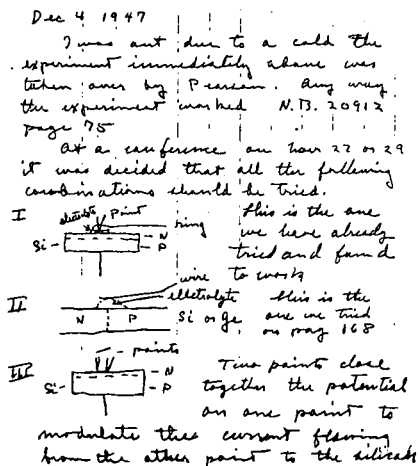 Dec 4 1947
I was out due to a cold the
experiment immediately above was
taken over by Pearson. Any way
the experiment worked N.B. 20912
page 75
At a conference on Nov 22 or 29
it was decided that all the following
combinations should be tried.
I
electrolyte Point
ring
Si N
P
This is the one
we have already
tried and found
to work
II
wire
electrolyte
N P Si or Ge
This is the
one we tried
on pag 168
III
points
Si N
P
Two points close
together the potential
on one point to
modulate the current flowing
from the other point to the silicon